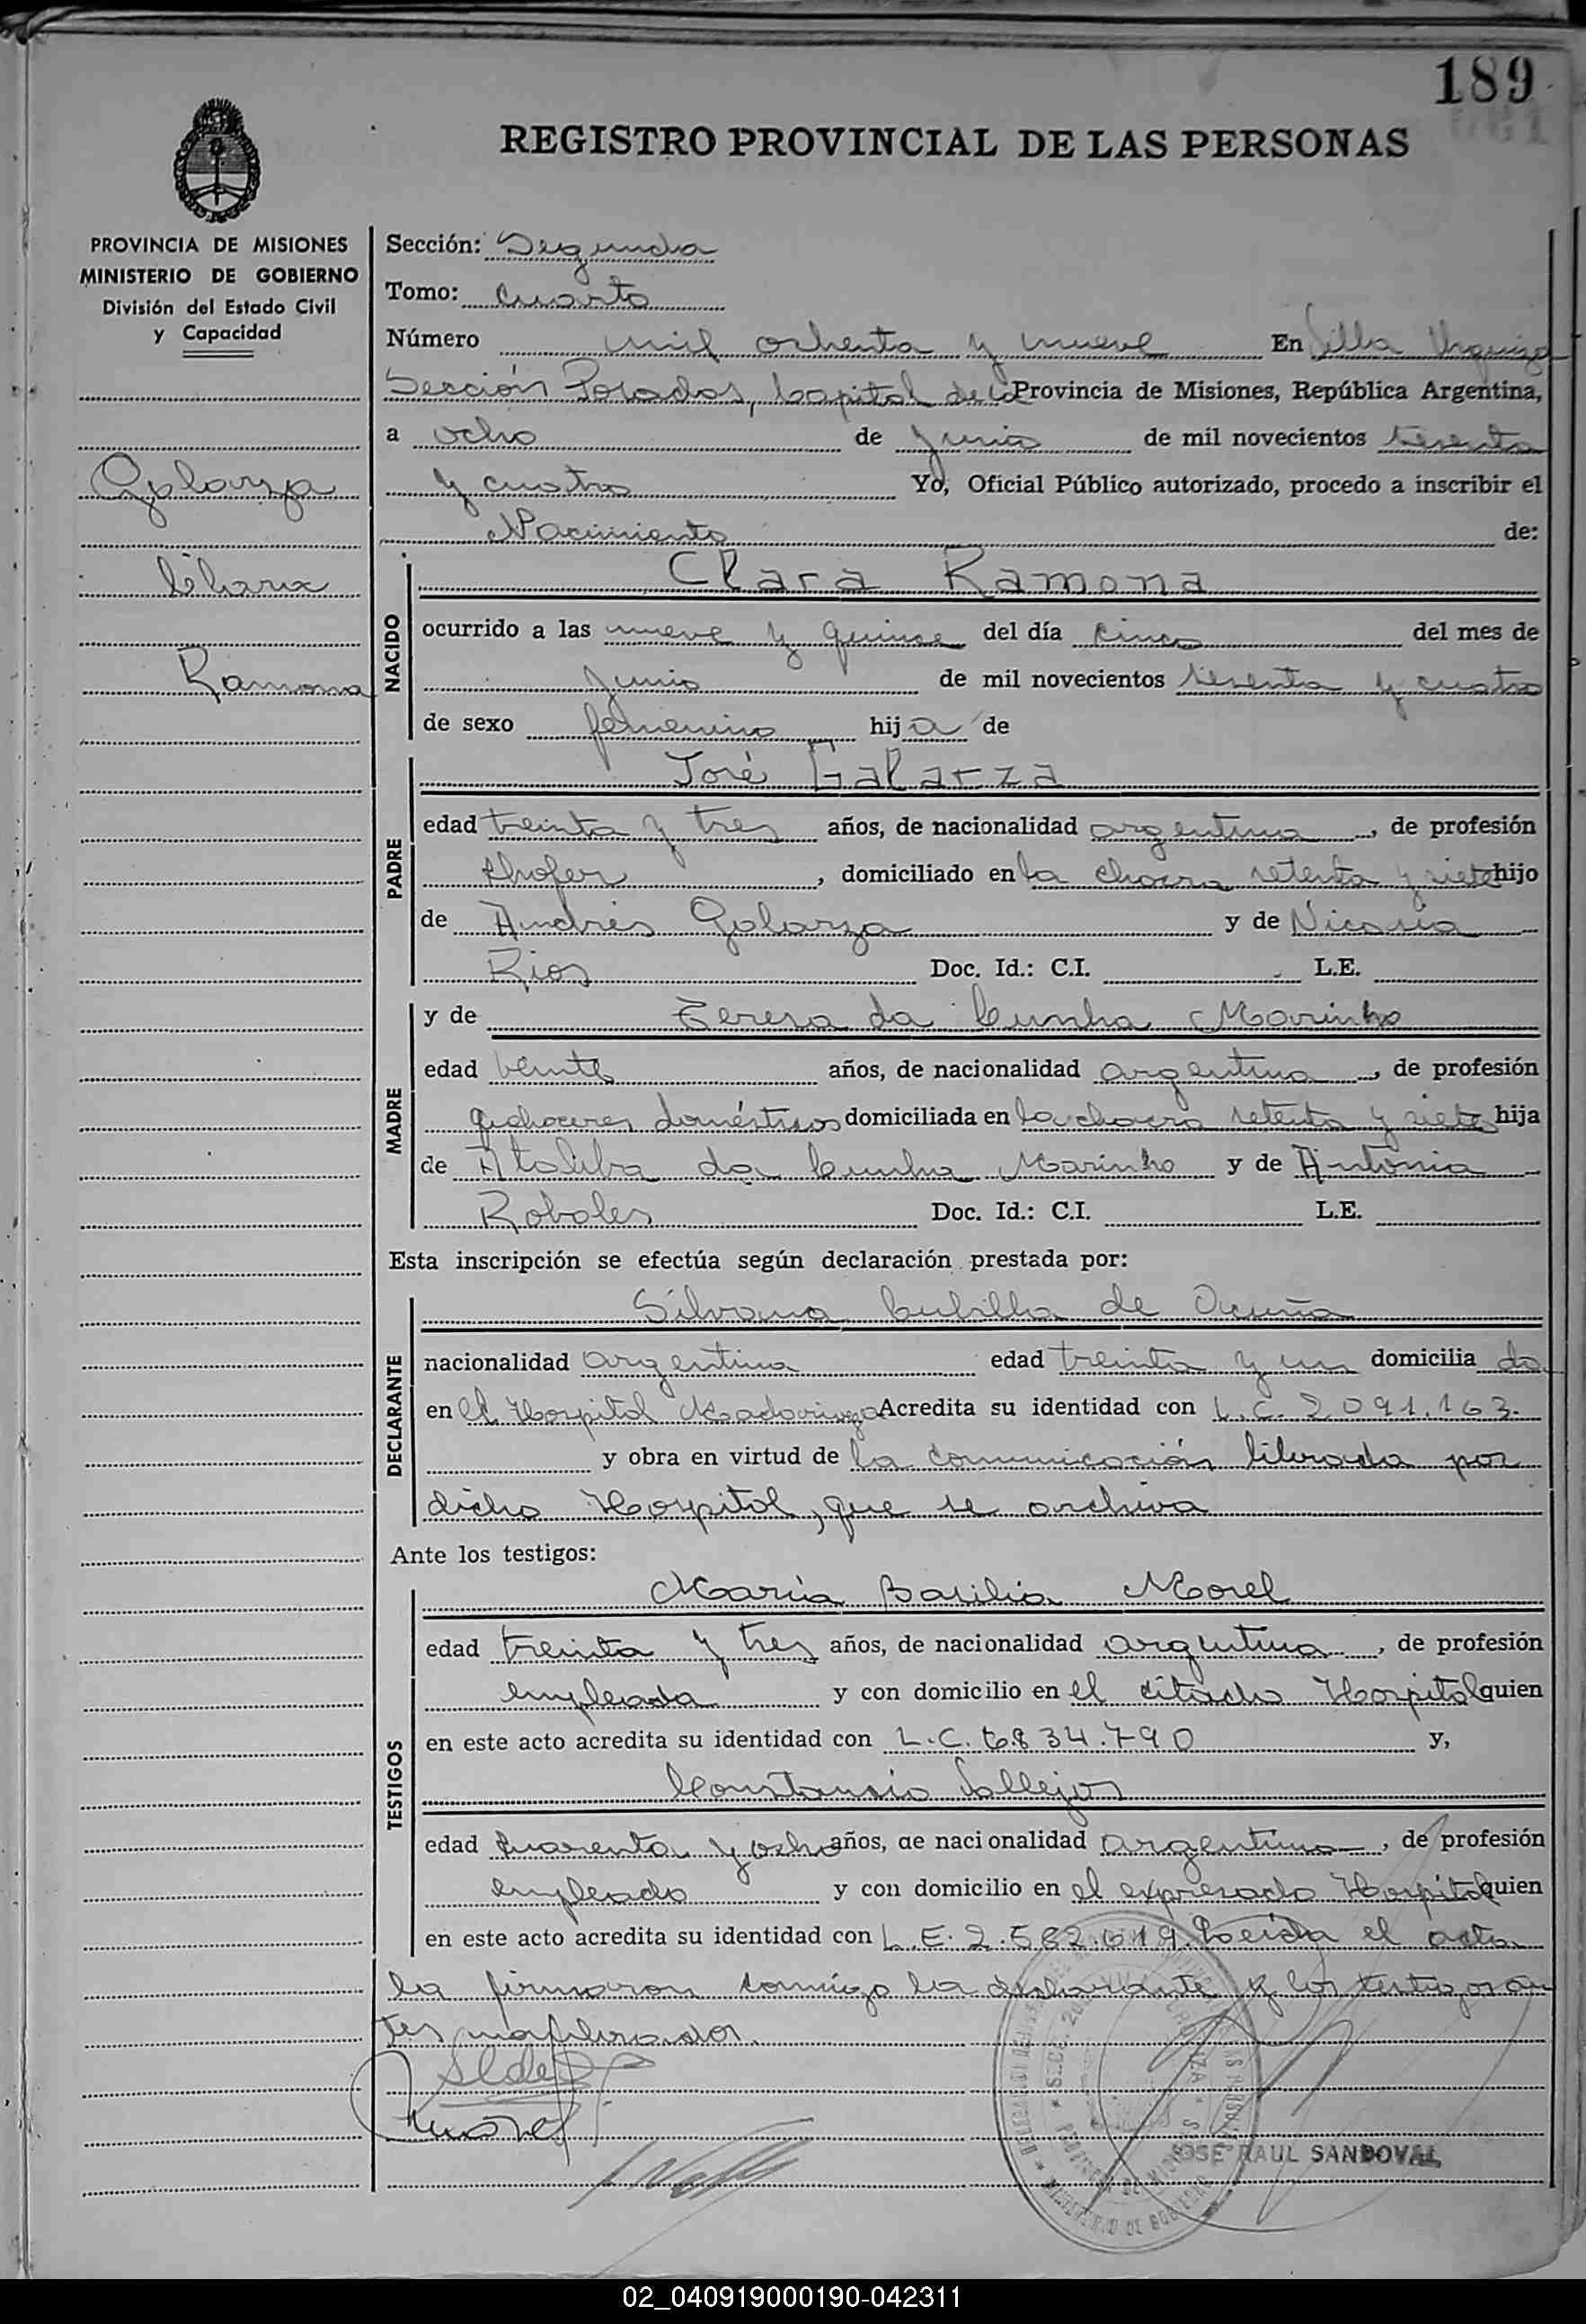 189
REGISTRO PROVINCIAL DE LAS PERSONAS
PROVINCIA DE MISIONES
MINISTERIO DE GOBIERNO
División del Estado Civil
y Capacidad
Galarza
Clara
Ramona
Sección: Segunda
Tomo: Cuarto
Número mil ochenta y nueve En Villa Urquiza
Sección Posadas, Capital de la Provincia de Misiones, República Argentina,
a ocho de Junio de mil novecientos sesenta
y cuatro Yo, Oficial Público autorizado, procedo a inscribir el
Nacimiento de:
NACIDO
Clara Ramona
ocurrido a las nueve y quince del día cinco del mes de
Junio de mil novecientos sesenta y cuatro
de sexo femenino hija de
PADRE
José Galarza
edad treinta y tres años, de nacionalidad argentina, de profesión
chofer, domiciliado en la chacra setenta y siete hijo
de Andrés Galarza y de Nicasia
Rios Doc. Id.: C.I. L.E.
MADRE
y de Teresa da Cunha Marinho
edad veinte años, de nacionalidad argentina, de profesión
quehaceres domésticos domiciliada en la chacra setenta y siete hija
de Ataliba da Cunha Marinho y de Antonia
Robales Doc. Id.: C.I. L.E.
Esta inscripción se efectúa según declaración prestada por:
DECLARANTE
Silvana Cubilla de Acuña
nacionalidad argentina edad treinta y un domicilia da
en el Hospital Madariaga Acredita su identidad con L.C. 2.091.163.
y obra en virtud de la comunicación librada por
dicho Hospital, que se archiva
Ante los testigos:
TESTIGOS
María Basilia Morel
edad treinta y tres años, de nacionalidad argentina, de profesión
empleada y con domicilio en el citado Hospital quien
en este acto acredita su identidad con L.C. 6.834.790 y,
Constancio Vallejos
edad cuarenta y ocho años, de nacionalidad argentina, de profesión
empleado y con domicilio en el expresado Hospital quien
en este acto acredita su identidad con L.E. 2.582.619. Leída el acta
la firmaron conmigo la declarante y los testigos an
tes nombrados.
JOSE RAUL SANDOVAL
02_040919000190-042311